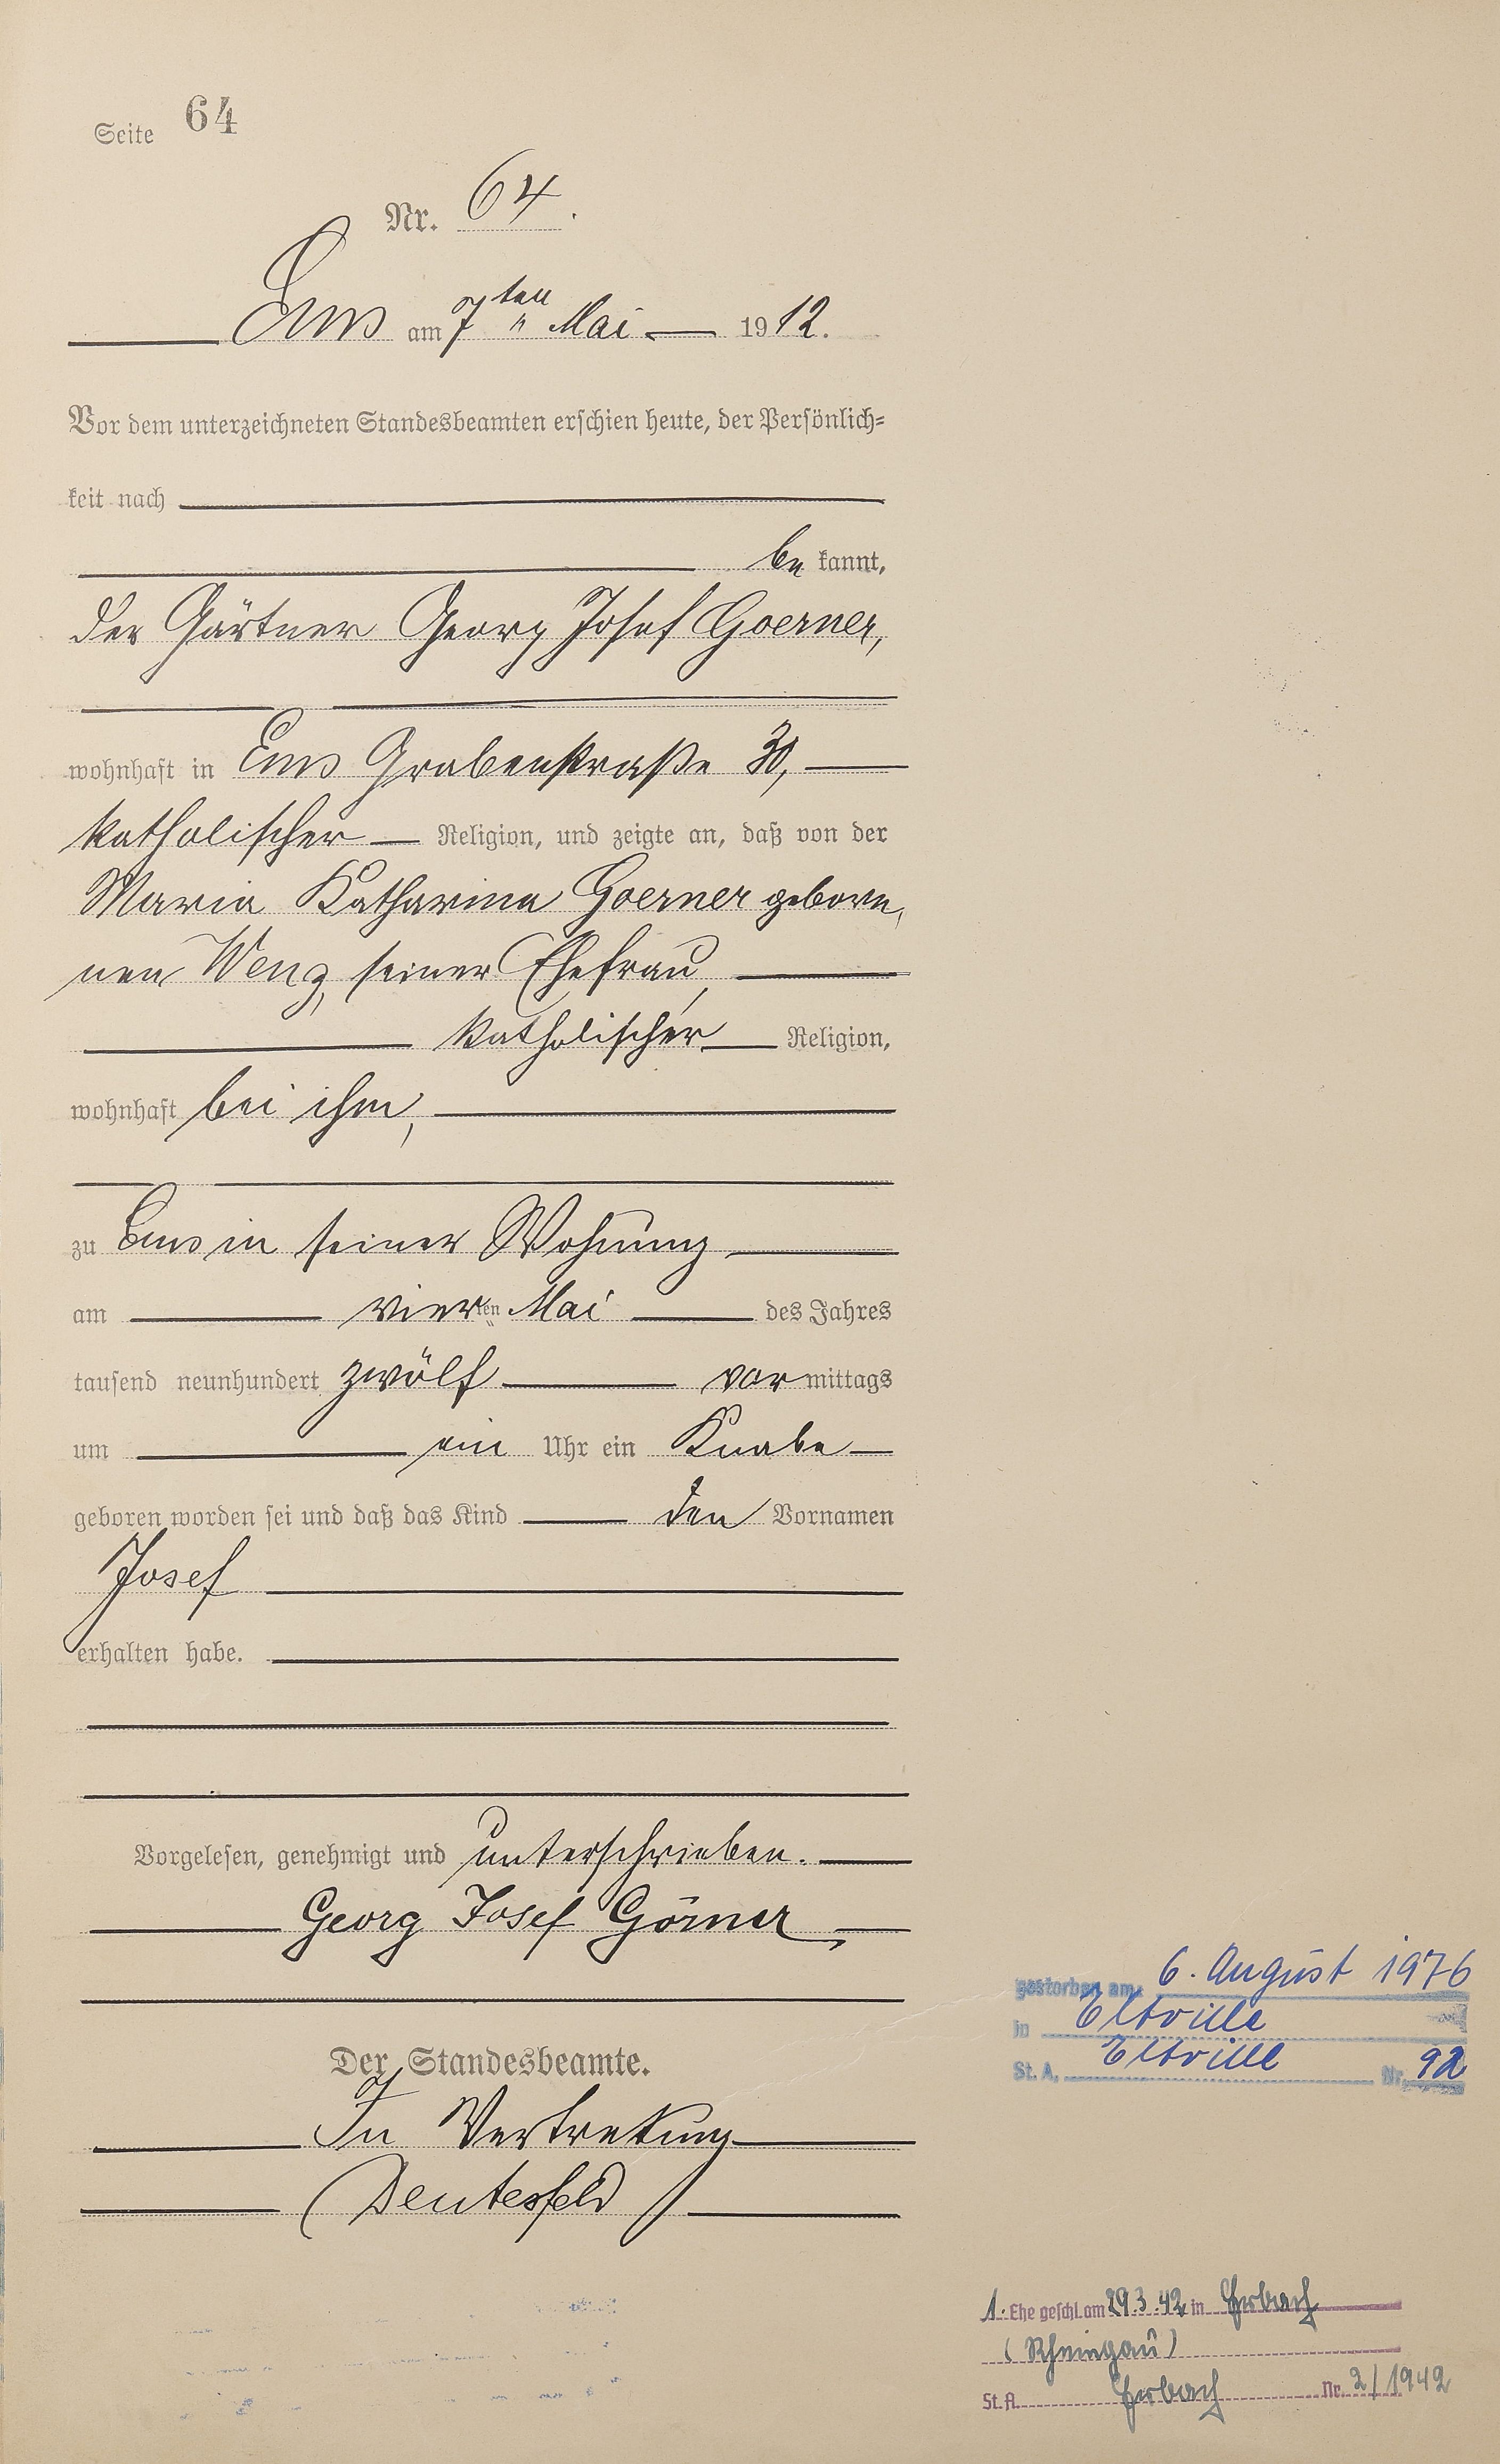 Seite 64
Nr. 64.
Ems am 7ten " Mai 1912.
Vor dem unterzeichneten Standesbeamten erschien heute, der Persönlich=
keit nach
be kannt,
der Gärtner Georg Josef Goerner,
wohnhaft in Ems Grabenstraße 30,
katholischer Religion, und zeigte an, daß von der
Maria Katharina Goerner gebore,
nen Weng, seiner Ehefrau,
katholischer Religion,
wohnhaft bei ihm,
zu Ems in seiner Wohnung
am vierten Mai des Jahres
tausend neunhundert zwölf vor mittags
um ein Uhr ein Knabe
geboren worden sei und daß das Kind den Vornamen
Josef
erhalten habe.
Vorgelesen, genehmigt und unterschrieben.
Georg Josef Görner
Der Standesbeamte.
In Vertretung
(Deutesfeld)
gestorben am 6. August 1976
in Eltville
St. A. Eltville Nr. 92
1. Ehe geschl. am 29.3.42 in Erbach
(Rheingau)
St. A. Erbach Nr. 2/1942